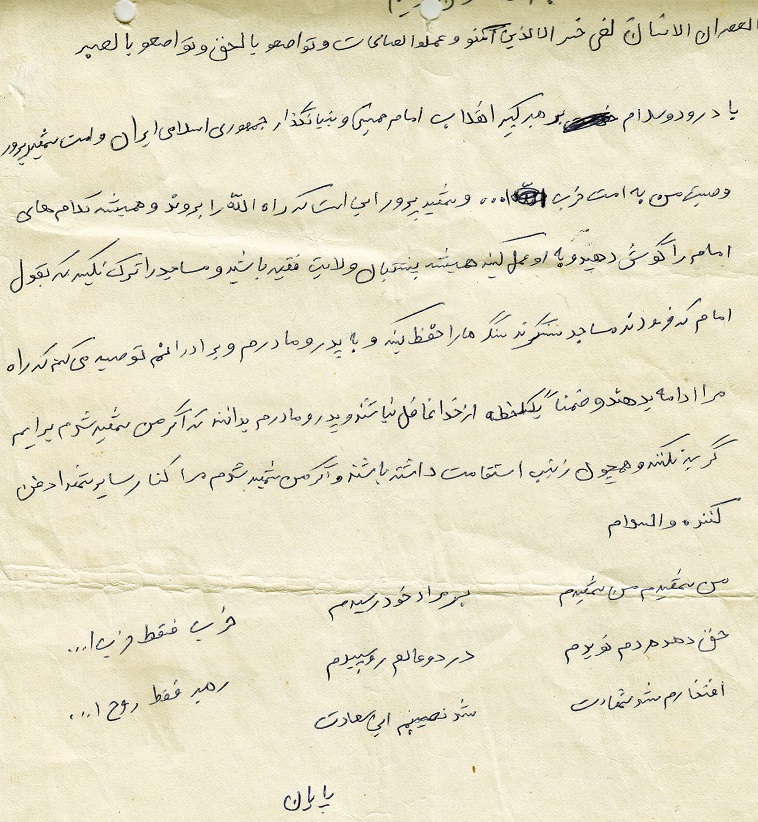 العصر ان الانسان لفی خسر الا الذین آمنو و عملو الصالحات و تواصعو بالحق و تواصعو بالصبر
با درود و سلام بر رهبر کبیر انقلاب امام خمینی و بنیانگذار جمهوری اسلامی ایران و امت شهید پرور
وصیت من به امت حزب ا... و شهید پرور این است که راه الله را بروند و همیشه کلام های
امام را گوش دهید و به او عمل کنید همیشه پشتیبان ولایت فقیه باشید و مساجد را ترک نکنید که بقول
امام که فرمودند مساجد سنگرند سنگرها را حفظ کنید و به پدر و مادرم و برادرانم توصیه می کنم که راه
مرا ادامه بدهند و ضمناً یک لحظه از خدا غافل نباشند و پدر و مادرم بدانند که اگر من شهید شدم برایم
گریه نکنند و همچون زینب استقامت داشته باشند و اگر من شهید شدم مرا کنار سایر شهدا دفن
کنند والسلام
من شهیدم من شهیدم بر مراد خود رسیدم
حق دهد هر دم نویدم در دو عالم روسپیدم
افتخارم شد شهادت شد نصیبم این سعادت
حزب فقط حزب ا...
رهبر فقط روح ا...
پایان